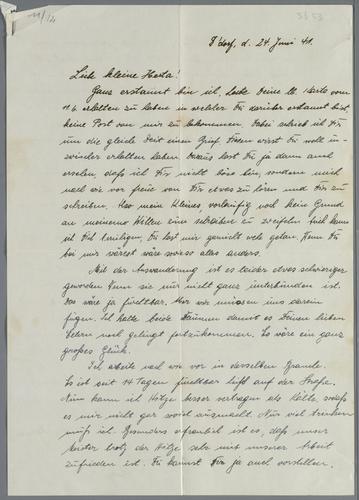 11/12
3853
D'dorf, d. 24. Juni 41.
Liebe kleine Herta!
Ganz erstaunt bin ich, Liebe Deine lb. Karte vom
11.6. erhalten zu haben in welcher Du darüber erstaunt bist,
keine Post von mir zu bekommen. Dabei schrieb ich Dir
um die gleiche Zeit einen Brief. Diesen wirst Du wohl in-
zwischen erhalten haben. Daraus hast Du ja dann auch
ersehen, daß ich Dir nicht böse bin, sondern mich
nach wie vor freue von Dir etwas zu hören und Dir zu
schreiben. Also mein Kleines vorläufig noch kein Grund
an meinem Willen zu schreiben zu zweifeln. Auch kann
ich Dich beruhigen, Du hast mir garnicht weh getan. Wenn Du
bei mir wärest wäre sowieso alles anders.
Mit der Auswanderung ist es leider etwas schwieriger
geworden. Wenn sie nur nicht ganz unterbunden ist.
Das wäre ja furchtbar. Aber wir müssen uns darein
fügen. Ich halte beide Daumen damit es Deinen lieben
Eltern noch gelingt fortzukommen. Es wäre ein ganz
großes Glück.
Ich arbeite nach wie vor in derselben Branche.
Es ist seit 14 Tagen furchtbar heiß auf der Straße.
Nun kann ich Hitze besser vertragen als Kälte, sodaß
es mir nicht gar soviel ausmacht. Nur viel trinken
muß ich. Besonders erfreulich ist es, daß unser
Meister trotz der Hitze sehr mit unserer Arbeit
zufrieden ist. Du kannst Dir ja auch vorstellen,